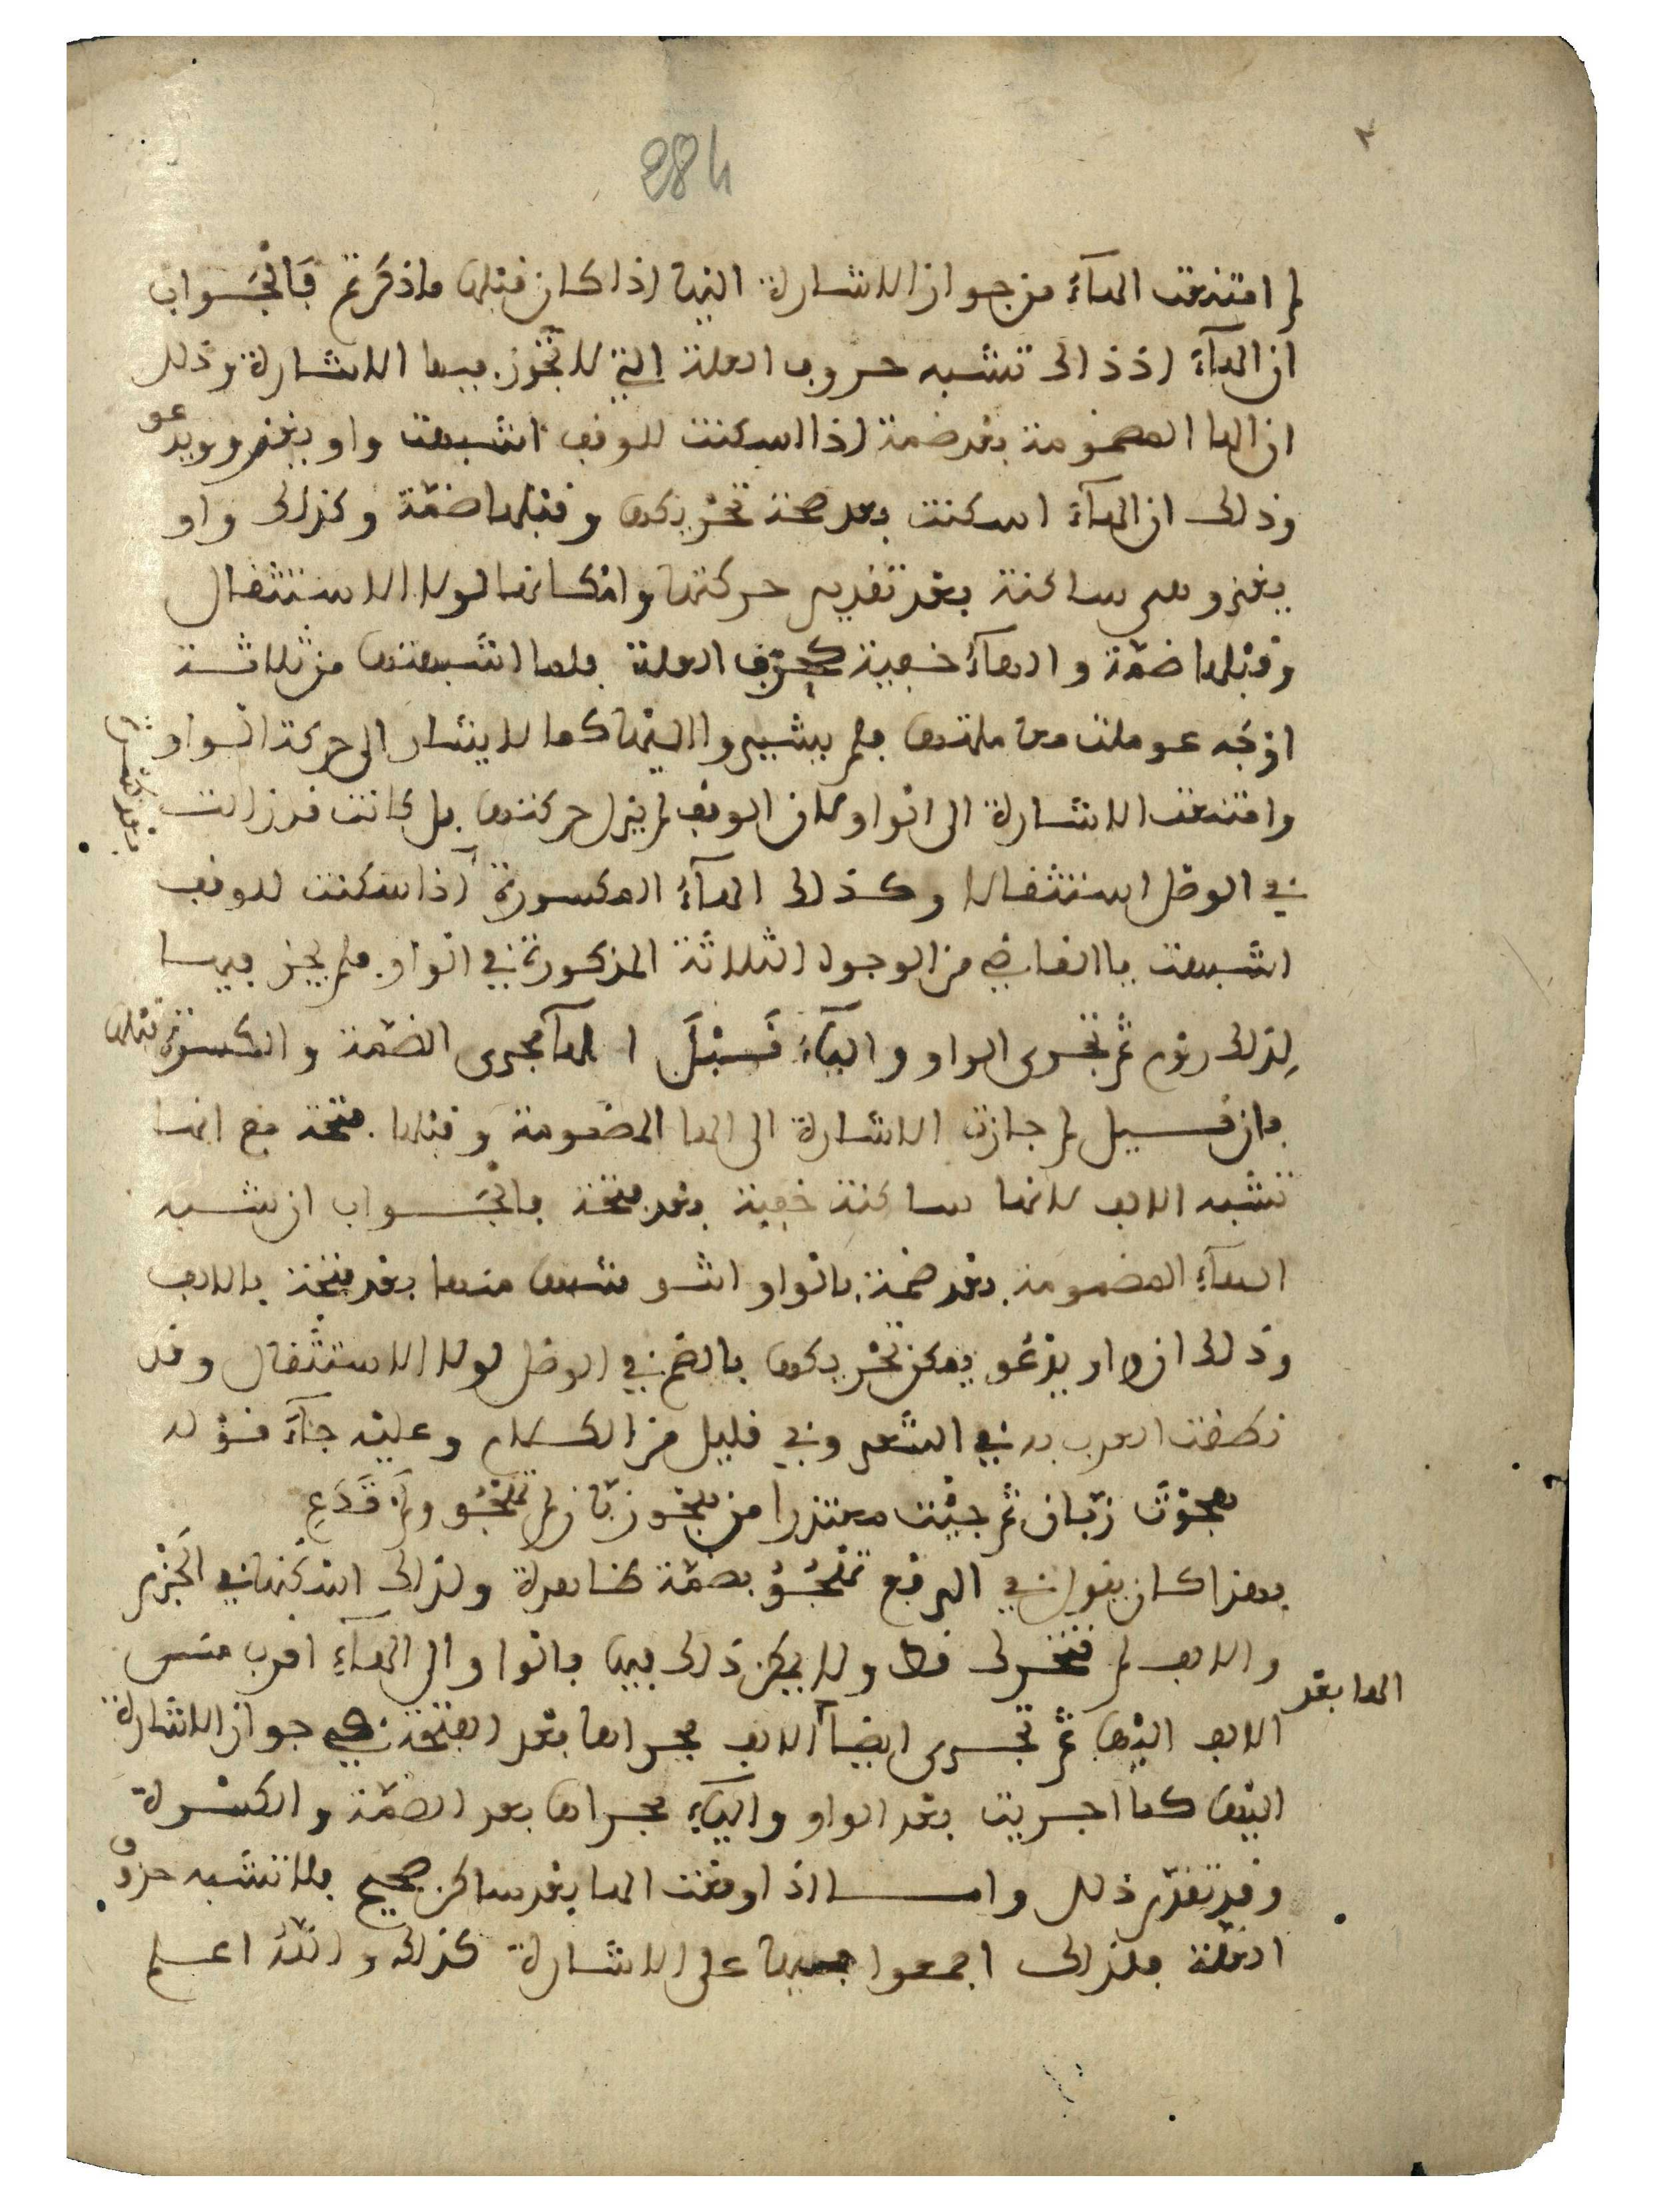 ٢
284
لم امتنعت الهآء من جواز الاشارة اليها اذا كان قبلها ماذكرتم فالجواب
ان الهآء اذ ذاك تشبه حروف العلة التي لا تجوز فيها الاشارة وذلك
ان الها المضمومة بعد ضمة اذا اسكنت للوقف اشبهت واو يغزو ويدعو
وذلك ان الهآء اسكنت بعد صحة تحريكها وقبلها ضمّة وكذلك واو
يغزو هي ساكنة بعد تقدير حركتها وامكانها لولا الاستثقال
وقبلها ضمّة والهآء خفية كحرف العلة فلما اشبهتها من ثلاثة
اوجه عوملت معاملتها فلم يشيروا اليها كما لا يشار الى حركة الواو
وامتنعت الاشارة الى الواو لان الوقف لم يزل حركتها بل كانت قد زالت
في الوصل استثقالا وكذلك الهآء المكسورة اذا سكنت للوقف
اشبهت يا القاضي من الوجوه الثلاثة المذكورة في الواو فلم يجز فيها
لذلك روم ثم تجرى الواو واليآء قَبْلَ الهآ مجرى الضمّة والكسرة قبلها
فان قيل لم جازت الاشارة الى الها المضمومة وقبلها فتحة مع انها
تشبه الالف لانها ساكنة خفية بعد فتحة فالجواب ان شبه
الهآء المضمومة بعد ضمة بالواو اشد من شبهها بعد فتحة بالالف
وذلك ان واو يدعو يمكن تحريكها بالضم في الوصل لولا الاستثقال وقد
نطقت العرب به في الشعر وفي قليل من الكلام وعليه جآء قوله
هجوْتَ زبّان ثم جيْت معتذرا من هجو زبّان لم تهجُو ولم تَدَعِ
فهذا كان يقول في الرفع تهجُوُ بضمّة ظاهرة ولذلك اسكنها في الجزم
والالف لم تتحرك قط ولا يمكن ذلك فيها فالواو الى الهآء اقرب من
الالف اليها ثم تجرى ايضا الالف مجراها بعد الفتحة في جواز الاشارة
الها بعد
اليها كما اجريت بعد الواو واليآء مجراها بعد الضمّة والكسرة
وقد تقدّم ذلك واما اذا وقعت الها بعد ساكن صحيح فلا تشبه حروف
العلة فلذلك اجمعوا فيها على الاشارة كذلك والله اعلم